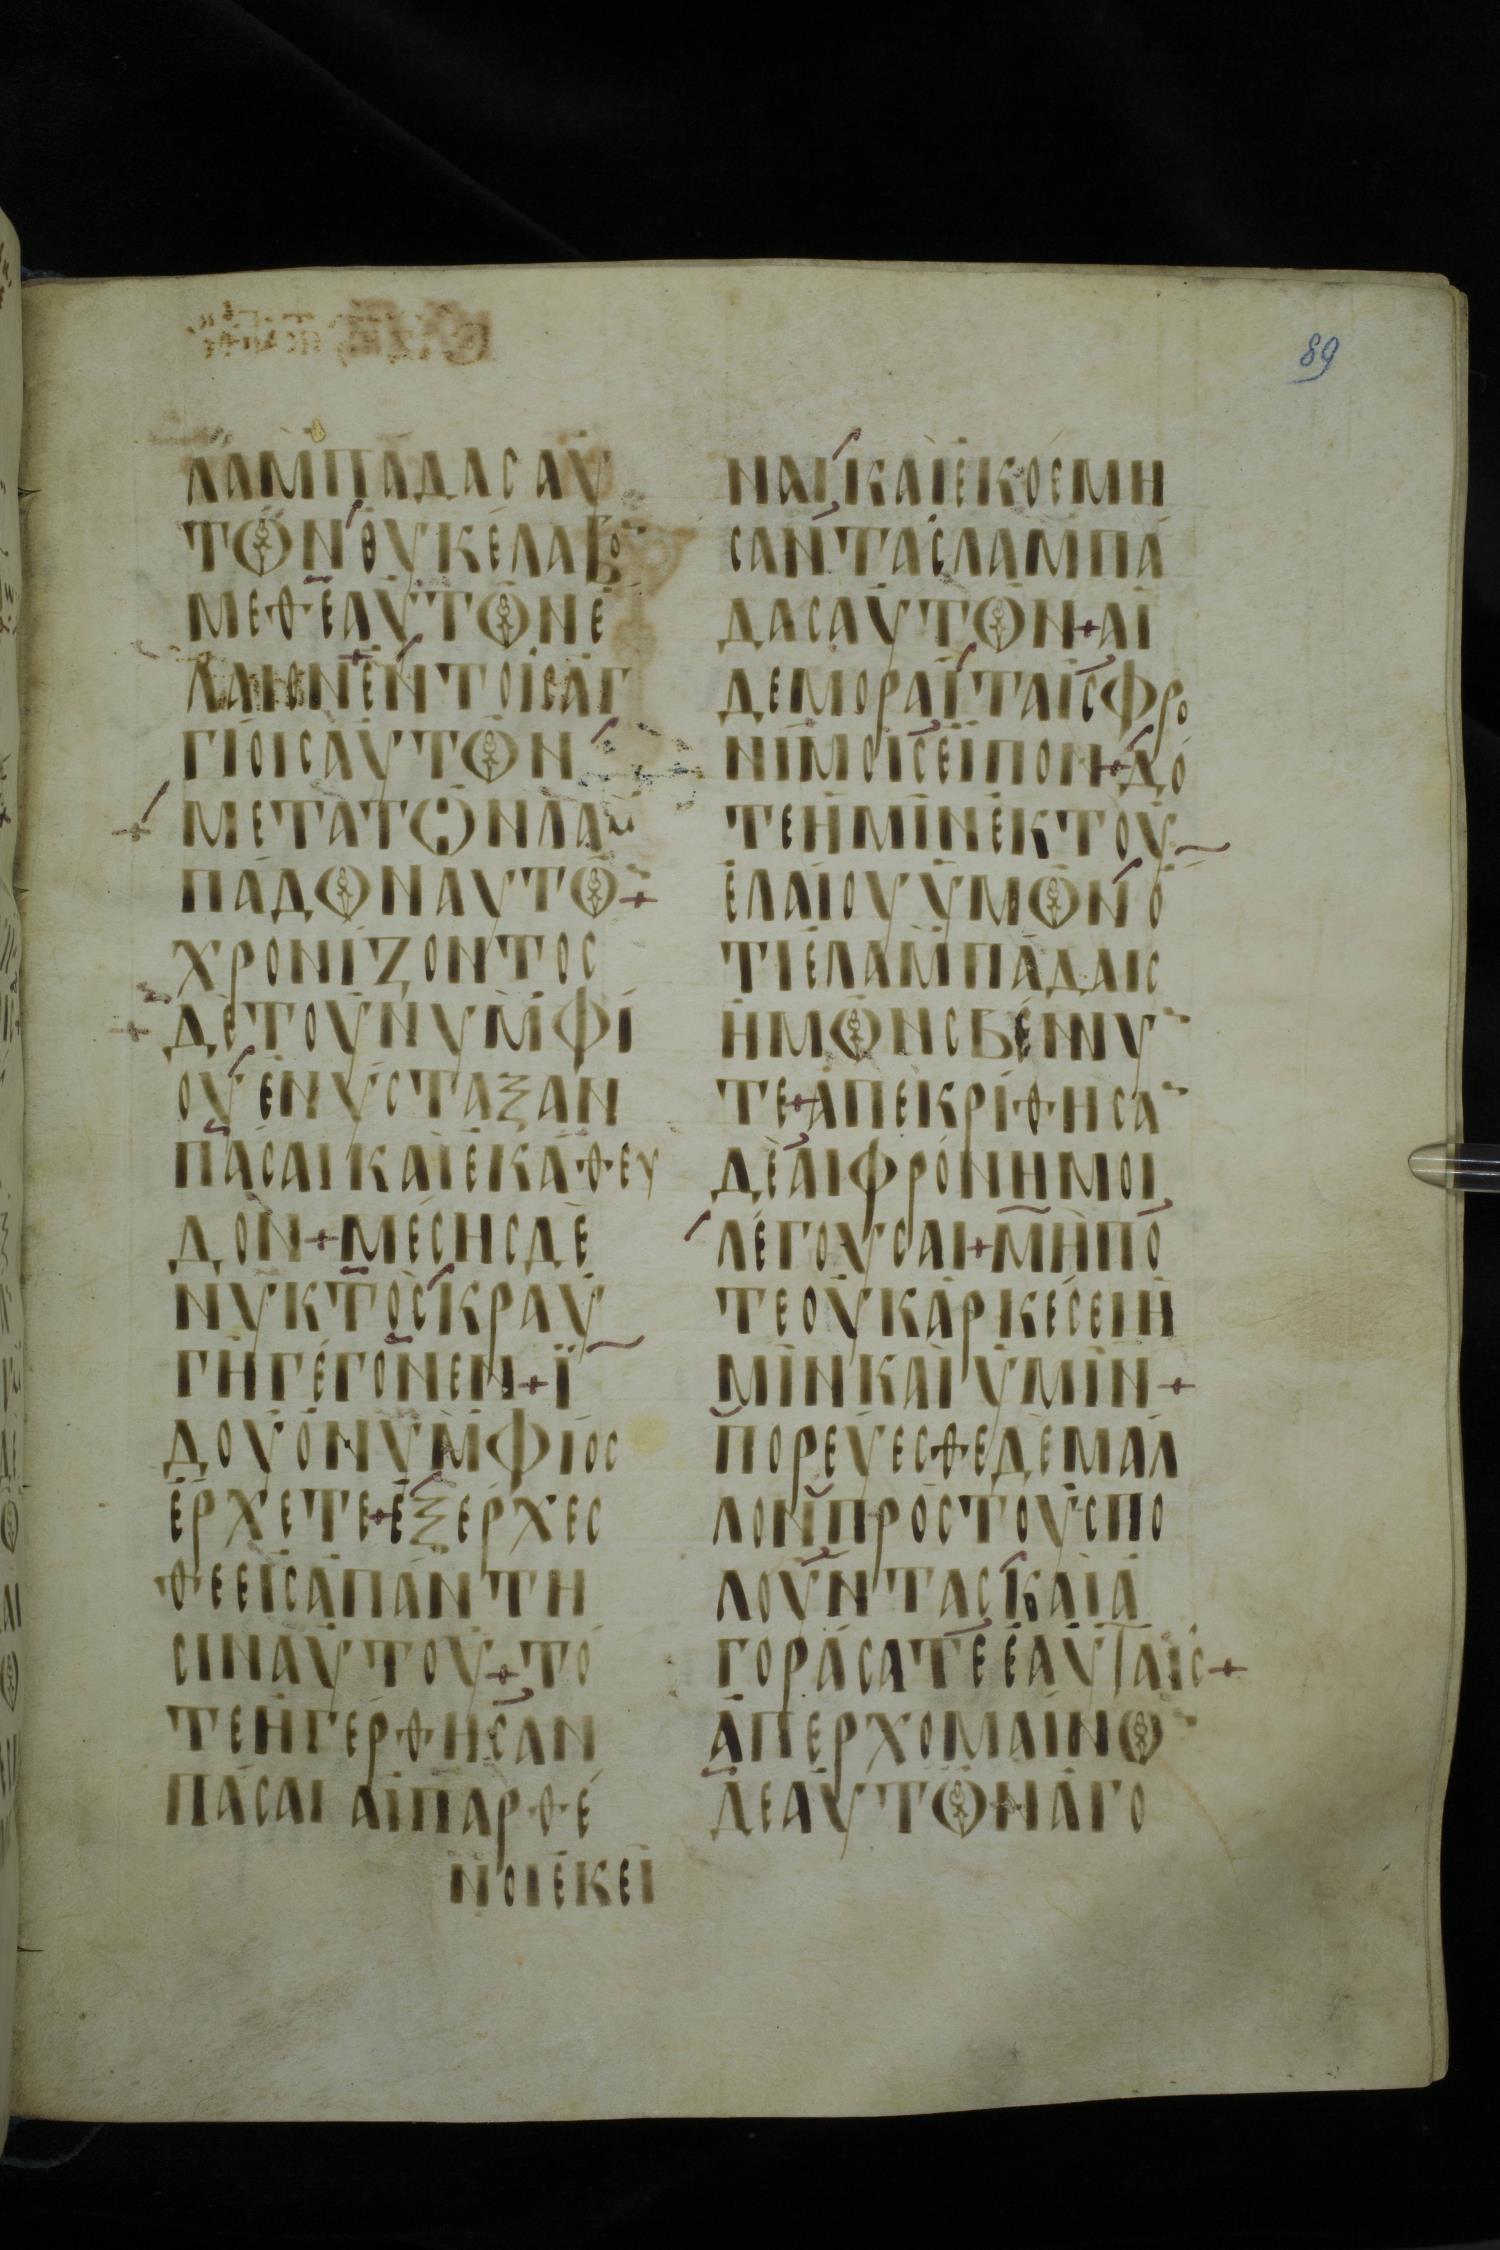 89
ΛΑΜΠΑΔΑΣ ΑΥ
ΤΩΝ ΟΥΚ ΕΛΑΒΟ
ΜΕΘ ΕΑΥΤΩΝ Ε
ΛΑΙΟΝ ΕΝ ΤΟΙΣ ΑΓ
ΓΙΟΙΣ ΑΥΤΩΝ
ΜΕΤΑ ΤΩΝ ΛΑΜ
ΠΑΔΩΝ ΑΥΤΩ +
ΧΡΟΝΙΖΟΝΤΟΣ
ΔΕ ΤΟΥ ΝΥΜΦΙ
ΟΥ ΕΝΥΣΤΑΞΑΝ
ΠΑΣΑΙ ΚΑΙ ΕΚΑΘΕΥ
ΔΟΝ + ΜΕΣΗΣ ΔΕ
ΝΥΚΤΟΣ ΚΡΑΥ
ΓΗ ΓΕΓΟΝΕΝ + Ϊ
ΔΟΥ Ο ΝΥΜΦΙΟΣ
ΕΡΧΕΤΕ + ΕΞΕΡΧΕΣ
ΘΕ ΕΙΣ ΑΠΑΝΤΗ
ΣΙΝ ΑΥΤΟΥ + ΤΟ
ΤΕ ΗΓΕΡΘΗΣΑΝ
ΠΑΣΑΙ ΑΙ ΠΑΡΘΕ
ΝΟΙ ΕΚΕΙ
ΝΑΙ ΚΑΙ ΕΚΟΣΜΗ
ΣΑΝ ΤΑΣ ΛΑΜΠΑ
ΔΑΣ ΑΥΤΩΝ + ΑΙ
ΔΕ ΜΟΡΑΙ ΤΑΙΣ ΦΡΟ
ΝΙΜΟΙΣ ΕΙΠΟΝ + ΔΟ
ΤΕ ΗΜΙΝ ΕΚ ΤΟΥ
ΕΛΑΙΟΥ ΥΜΩΝ Ο
ΤΙ Ε ΛΑΜΠΑΔΑΙΣ
ΗΜΩΝ ΣΒΕΝΝΥ
ΤΕ + ΑΠΕΚΡΙΘΗΣΑ
ΔΕ ΑΙ ΦΡΟΝΗΜΟΙ
ΛΕΓΟΥΣΑΙ + ΜΗΠΟ
ΤΕ ΟΥΚ ΑΡΚΕΣΕΙ Η
ΜΙΝ ΚΑΙ ΥΜΙΝ +
ΠΟΡΕΥΕΣΘΕ ΔΕ ΜΑΛ
ΛΟΝ ΠΡΟΣ ΤΟΥΣ ΠΟ
ΛΟΥΝΤΑΣ ΚΑΙ Α
ΓΟΡΑΣΑΤΕ ΕΑΥΤΑΙΣ +
ΑΠΕΡΧΟΜΑΙΝΩ
ΔΕ ΑΥΤΩΝ ΑΓΟ